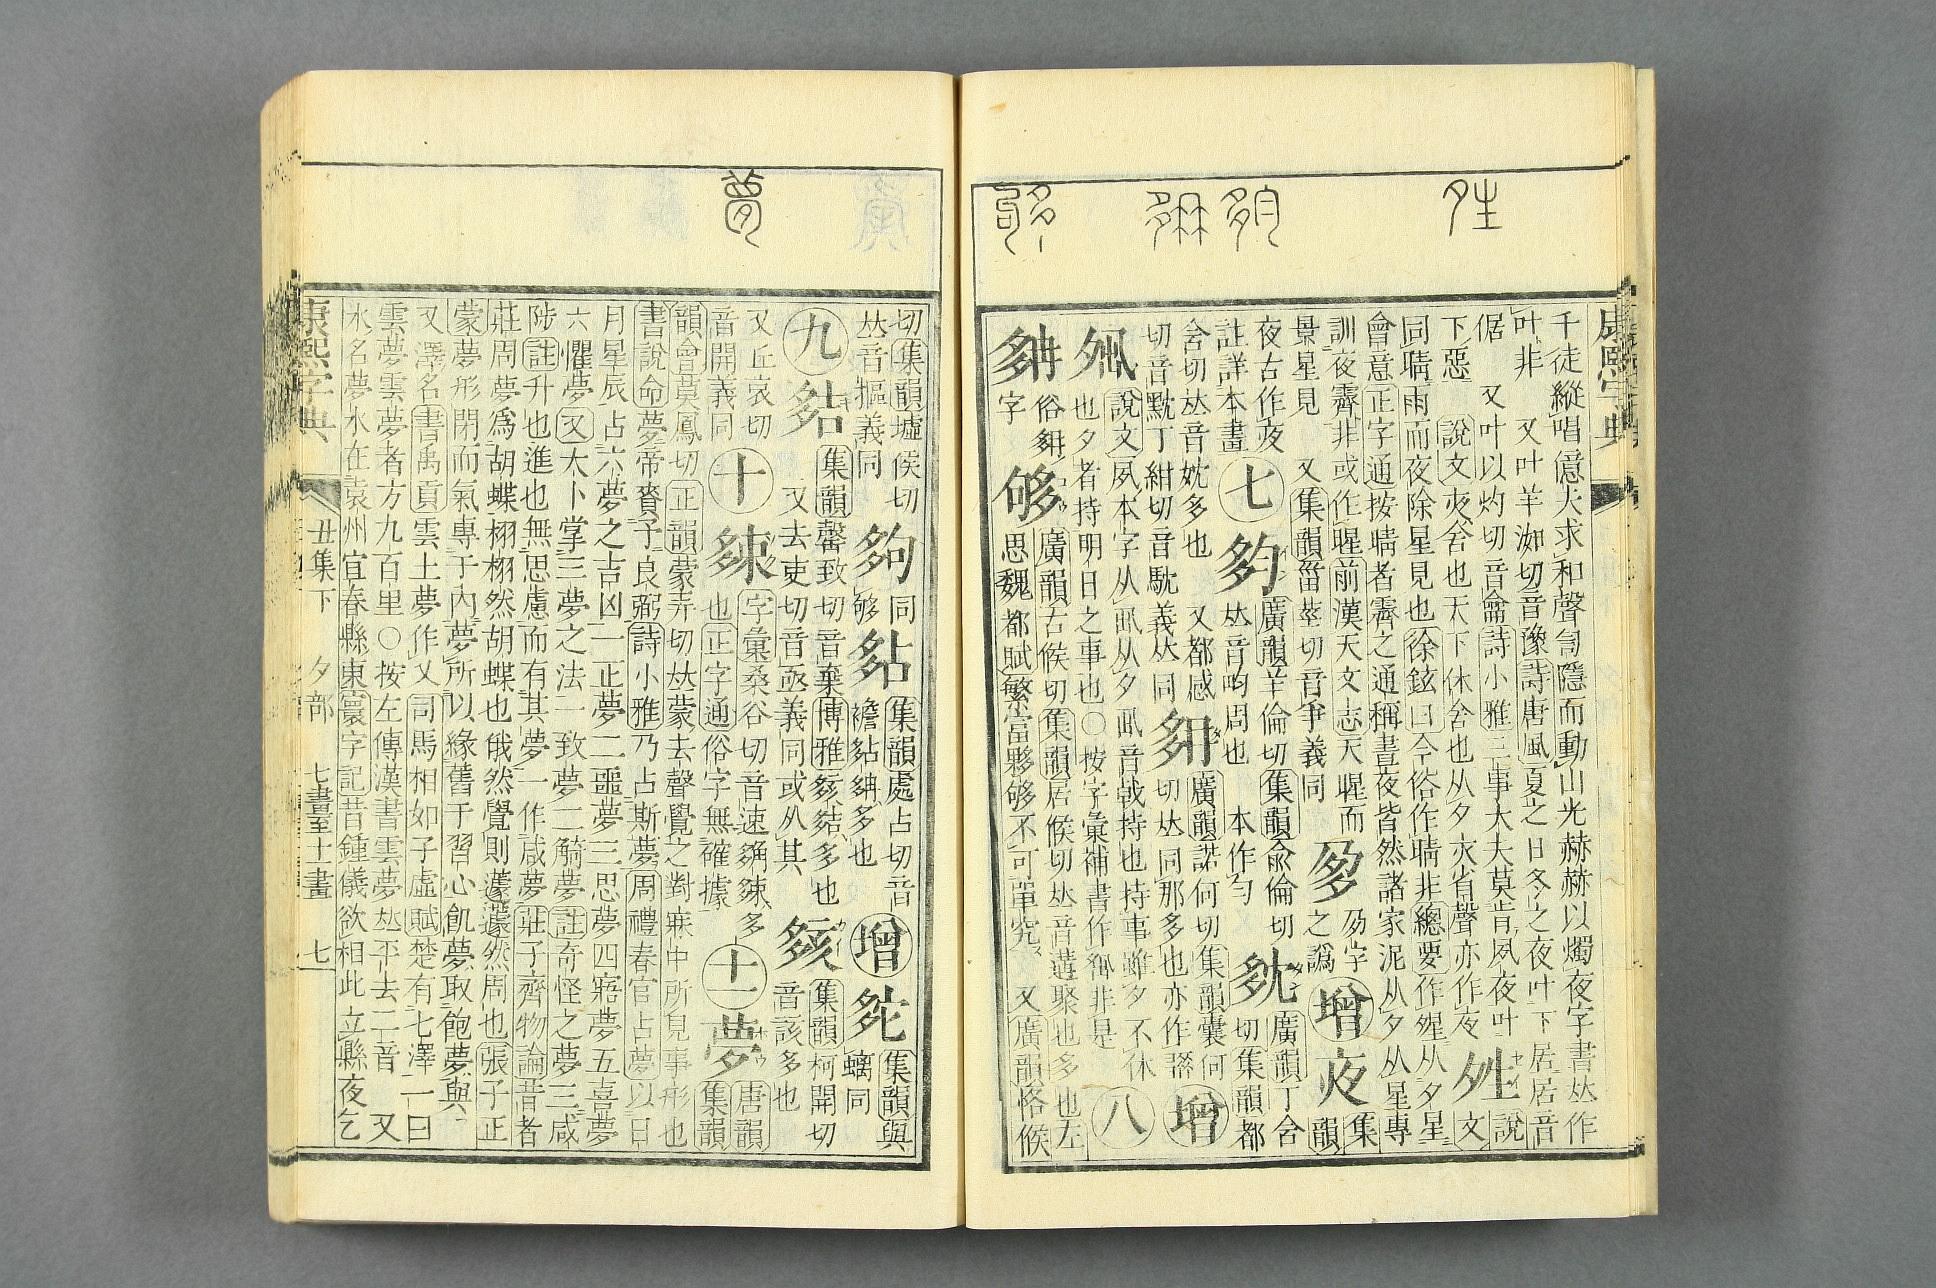 康熙字典
千徒縱唱億夫求和聲訇隱而動山光赫赫以燭夜字書𠀤作
叶非 又叶羊洳切音豫詩唐風夏之日冬之夜叶下居居音
倨 又叶以灼切音龠詩小雅三事大夫莫肯夙夜叶
下惡 說文夜舍也天下休舍也从夕亦省聲亦作夜
夝
說
文
同晴雨而夜除星見也徐鉉曰今俗作晴非總要作暒从夕星
會意正字通按晴者霽之通稱晝夜皆然諸家泥从夕从星專
訓夜霽非或作暒前漢天文志天暒而
景星見 又集韻甾莖切音爭義同
多
夛字
之譌
增
夜
集
韻
夜古作夜
註詳本畫
七
夠
廣韻羊倫切集韻兪倫切
𠀤音畇周也 本作勻
廣韻丁含
切集韻都
含切𠀤音妉多也 又都感
切音黕丁紺切音馾義𠀤同
廣韻諾何切集韻囊何
切𠀤同那多也亦作
增
說文夙本字从丮从夕丮音戟持也持事雖夕不休
也夕者持明日之事也○按字彙補書作非是
八
俗
字
够
廣韻古候切集韻居候切𠀤音遘聚也多也左
思魏都賦繁富夥够不可單究 又廣韻恪候
切集韻墟侯切
𠀤音摳義同
夠
同
够
夡
集韻處占切音
襜多也
增
集韻與
螭同
九
集韻罄致切音棄博雅多也
又去吏切音亟義同或从其
集韻柯開切
音該多也
又丘哀切
音開義同
十
字彙桑谷切音速多
也正字通俗字無確據
十一
夢
唐韻
集韻
韻會莫鳳切正韻蒙弄切𠀤蒙去聲覺之對寐中所見事形也
書說命夢帝賚予良弼詩小雅乃占斯夢周禮春官占夢以日
月星辰占六夢之吉凶一正夢二噩夢三思夢四寤夢五喜夢
六懼夢又太卜掌三夢之法一致夢二觭夢註奇怪之夢三咸
陟註升也進也無思慮而有其夢一作咸夢莊子齊物論昔者
莊周夢爲胡蝶栩栩然胡蝶也俄然覺則蘧蘧然周也張子正
蒙夢形閉而氣專于內夢所以緣舊于習心飢夢取飽夢與
又澤名書禹貢雲土夢作乂司馬相如子虛賦楚有七澤一曰
雲夢雲夢者方九百里○按左傳漢書雲夢𠀤平去二音 又
水名夢水在袁州宜春縣東寰宇記昔鍾儀欲相此立縣夜乞
康熙字典 丑集下 夕部 七畫至十一畫 七